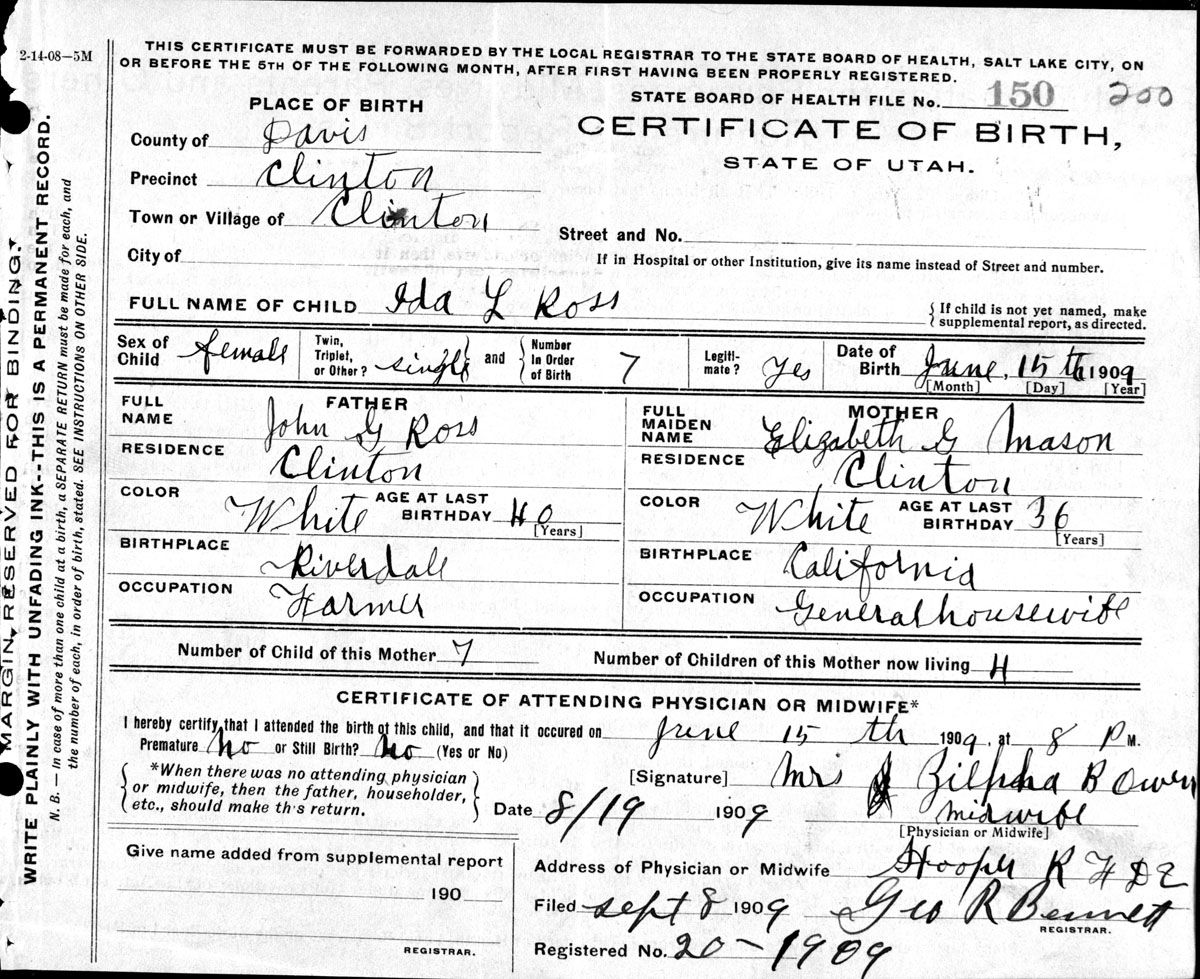 2-14-08—5M
THIS CERTIFICATE MUST BE FORWARDED BY THE LOCAL REGISTRAR TO THE STATE BOARD OF HEALTH, SALT LAKE CITY, ON
OR BEFORE THE 5TH OF THE FOLLOWING MONTH, AFTER FIRST HAVING BEEN PROPERLY REGISTERED.
STATE BOARD OF HEALTH FILE No. 150 200
CERTIFICATE OF BIRTH,
STATE OF UTAH.
PLACE OF BIRTH
County of Davis
Precinct Clinton
Town or Village of Clinton
Street and No.
City of
If in Hospital or other Institution, give its name instead of Street and number.
FULL NAME OF CHILD Ida L Ross
If child is not yet named, make
supplemental report, as directed.
Sex of Child female
Twin, Triplet, or Other? single and
Number In Order of Birth 7
Legiti-mate? Yes
Date of Birth June 15th 1909
[Month] [Day] [Year]
FATHER
FULL NAME John G Ross
RESIDENCE Clinton
COLOR White AGE AT LAST BIRTHDAY 40
[Years]
BIRTHPLACE Riverdale
OCCUPATION Farmer
MOTHER
FULL MAIDEN NAME Elizabeth G Mason
RESIDENCE Clinton
COLOR White AGE AT LAST BIRTHDAY 36
[Years]
BIRTHPLACE California
OCCUPATION General housewife
Number of Child of this Mother 7 Number of Children of this Mother now living 4
CERTIFICATE OF ATTENDING PHYSICIAN OR MIDWIFE*
I hereby certify that I attended the birth of this child, and that it occured on June 15 th 1909, at 8 P M.
Premature No or Still Birth? No (Yes or No)
*When there was no attending physician
or midwife, then the father, householder,
etc., should make this return.
[Signature] Mrs Zilpha B Owen
Date 8/19 1909 midwife
[Physician or Midwife]
Give name added from supplemental report
190
REGISTRAR.
Address of Physician or Midwife Hooper R F D 2
Filed Sept 8 1909 Geo R Bennett
REGISTRAR.
Registered No. 20-1909
MARGIN RESERVED FOR BINDING.
WRITE PLAINLY WITH UNFADING INK--THIS IS A PERMANENT RECORD.
N. B.—In case of more than one child at a birth, a SEPARATE RETURN must be made for each, and
the number of each, in order of birth, stated. SEE INSTRUCTIONS ON OTHER SIDE.